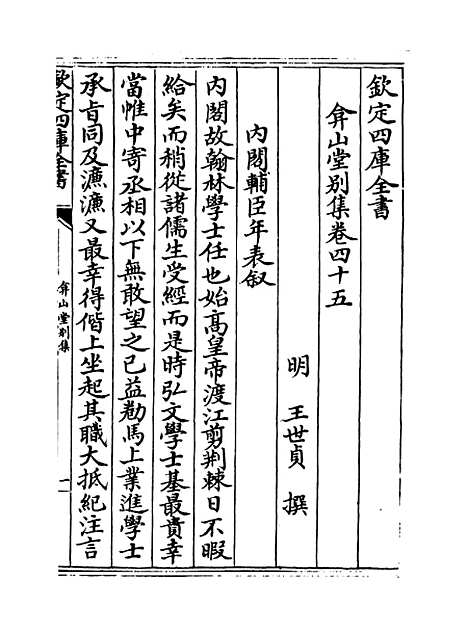 欽定四庫全書
弇山堂別集卷四十五
明 王世貞 撰
內閣輔臣年表叙
內閣故翰林學士任也始髙皇帝渡江剪荆棘日不暇
給矣而稍從諸儒生受經而是時弘文學士基最貴幸
當帷中寄丞相以下無敢望之已益勸馬上業進學士
承旨同及濂濂又最幸得偕上坐起其職大抵紀注言
欽定四庫全書
弇山堂別集
一